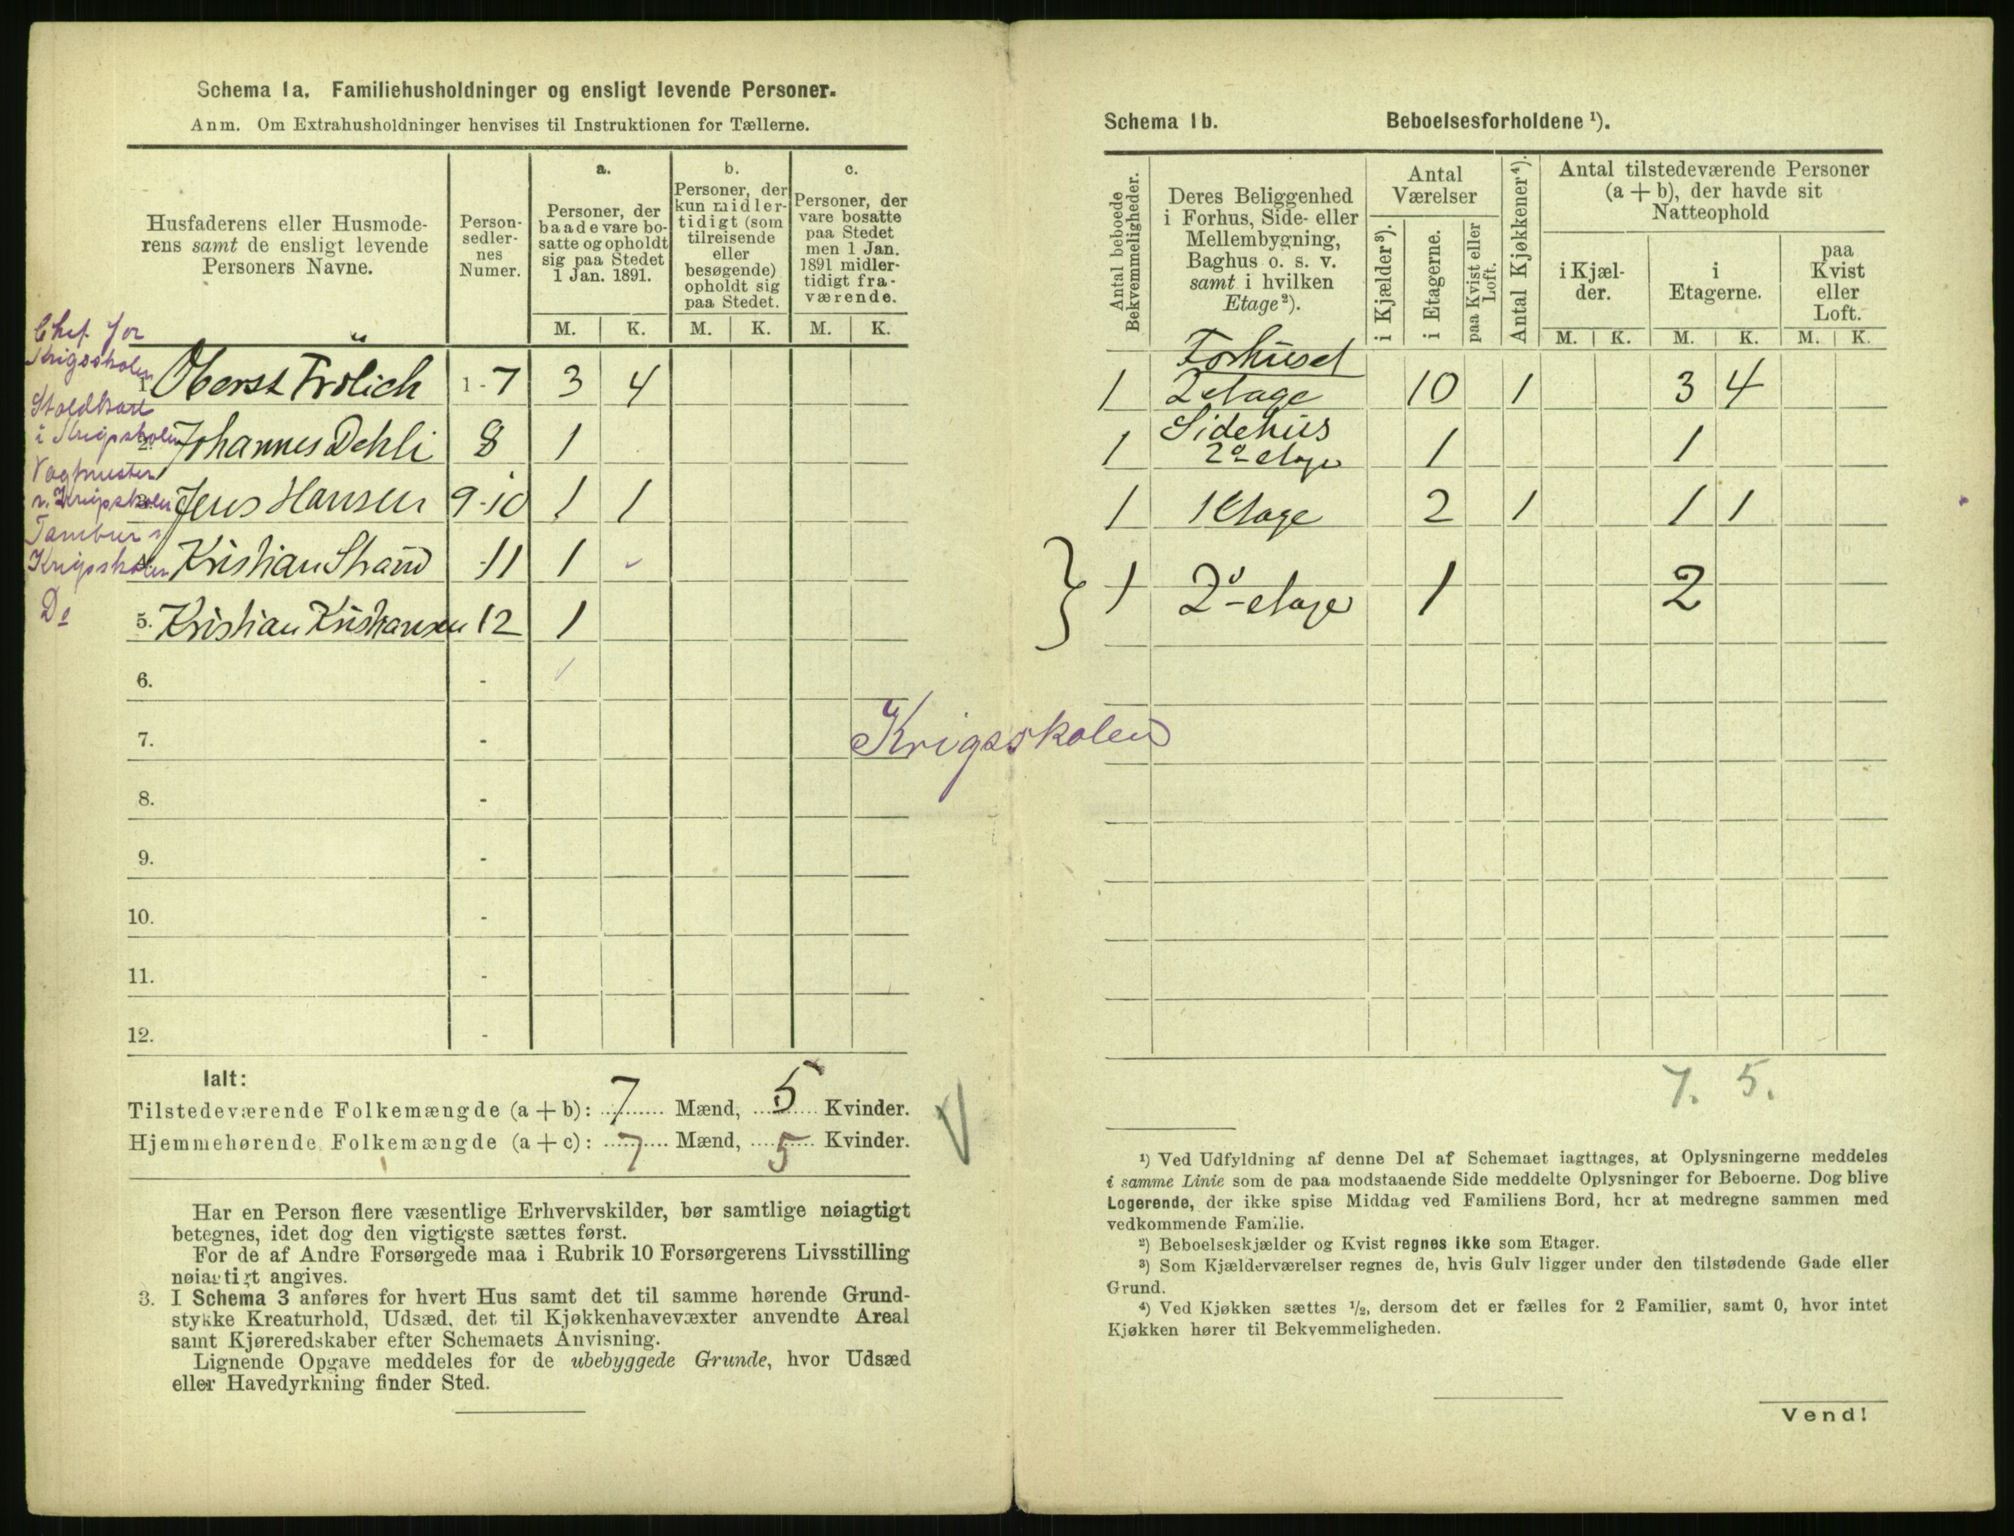 Schema 1a. Familiehusholdninger og ensligt levende Personer.
Anm. Om Extrahusholdninger henvises til Instruktionen for Tællerne.
Husfaderens eller Husmode-
rens samt de ensligt levende
Personers Navne.
Person-
sedler-
nes
Numer.
a.
Personer, der
baade vare bo-
satte og opholdt
sig paa Stedet
1 Jan. 1891.
b.
Personer, der
kun midler-
tidigt (som
tilreisende
eller
besøgende)
opholdt sig
paa Stedet.
c.
Personer, der
vare bosatte
paa Stedet
men 1 Jan.
1891 midler-
tidigt fra-
værende.
M. K. M. K. M. K.
Chef for
Krigsskolen
1. Oberst Frölich 1-7 3 4
i Krigsskolen
2. Johannes Dehli 8 1
Vagtmester
v. Krigsskolen
3. Jens Hansen 9-10 1 1
Tambur v
Krigsskolen
4. Kristian Strand -11 1
Do
5. Kristian Kristiansen 12 1
6. -
7. -
8. -
9. -
10. -
11. -
12. -
Krigsskolen
Ialt:
Tilstedeværende Folkemængde (a + b): 7 Mænd, 5 Kvinder.
Hjemmehørende Folkemængde (a + c): 7 Mænd, 5 Kvinder.
Har en Person flere væsentlige Erhvervskilder, bør samtlige nøiagtigt
betegnes, idet dog den vigtigste sættes først.
For de af Andre Forsørgede maa i Rubrik 10 Forsørgerens Livsstilling
nøiagtigt angives.
3. I Schema 3 anføres for hvert Hus samt det til samme hørende Grund-
stykke Kreaturhold, Udsæd, det til Kjøkkenhavevæxter anvendte Areal
samt Kjøreredskaber efter Schemaets Anvisning.
Lignende Opgave meddeles for de ubebyggede Grunde, hvor Udsæd
eller Havedyrkning finder Sted.
Schema 1b. Beboelsesforholdene ¹).
Antal beboede
Bekvemmeligheder.
Deres Beliggenhed
i Forhus, Side- eller
Mellembygning,
Baghus o. s. v.
samt i hvilken
Etage ²).
Antal
Værelser
i Kjælder ³).
i Etagerne.
paa Kvist eller
Loft.
Antal Kjøkkener ⁴).
Antal tilstedeværende Personer
(a + b), der havde sit
Natteophold
i Kjæl-
der.
i
Etagerne.
paa
Kvist
eller
Loft.
M. K. M. K. M. K.
Forhuset
1 2 etage 10 1 3 4
Sidehus
1 2den etage 1 1
1 1 Etage 2 1 1 1
} 1 2den etage 1 2
7. 5.
¹) Ved Udfyldning af denne Del af Schemaet iagttages, at Oplysningerne meddeles
i samme Linie som de paa modstaaende Side meddelte Oplysninger for Beboerne. Dog blive
Logerende, der ikke spise Middag ved Familiens Bord, her at medregne sammen med
vedkommende Familie.
²) Beboelseskjælder og Kvist regnes ikke som Etager.
³) Som Kjælderværelser regnes de, hvis Gulv ligger under den tilstødende Gade eller
Grund.
⁴) Ved Kjøkken sættes ¹/₂, dersom det er fælles for 2 Familier, samt 0, hvor intet
Kjøkken hører til Bekvemmeligheden.
Vend!